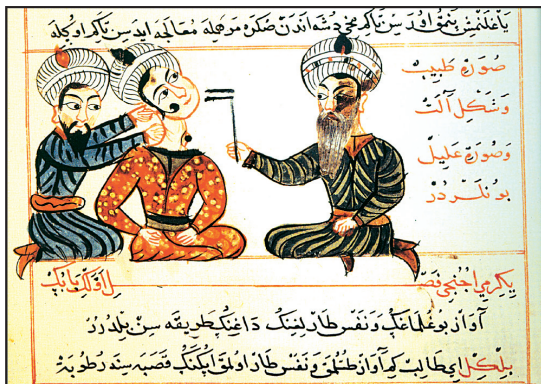 ياغلنمش پنبوق اورەسن تاكم مخدشه اندن صكره مرهمله معالجه ايدەسن تاكم اوكيله
صورة طبيب
و شكل آلت
و صورة عليل
بونلردر
يكرمي اوجنجي فصل اوّلكي بابك
آواز بوغلماغك و نفس طارلغنك داغنك طريقه سن بلدرر
بلكل اي طالب كم آواز طتلمق و نفس طار اولمق ايكنك قصبه سنده رطوبة